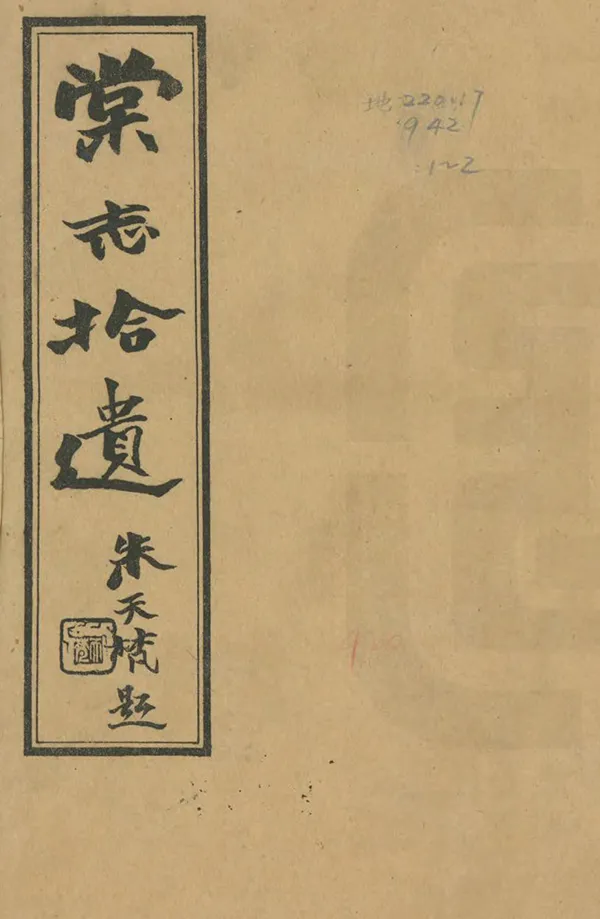 棠志拾遺
朱天梵題
地220.17
942
:1~2